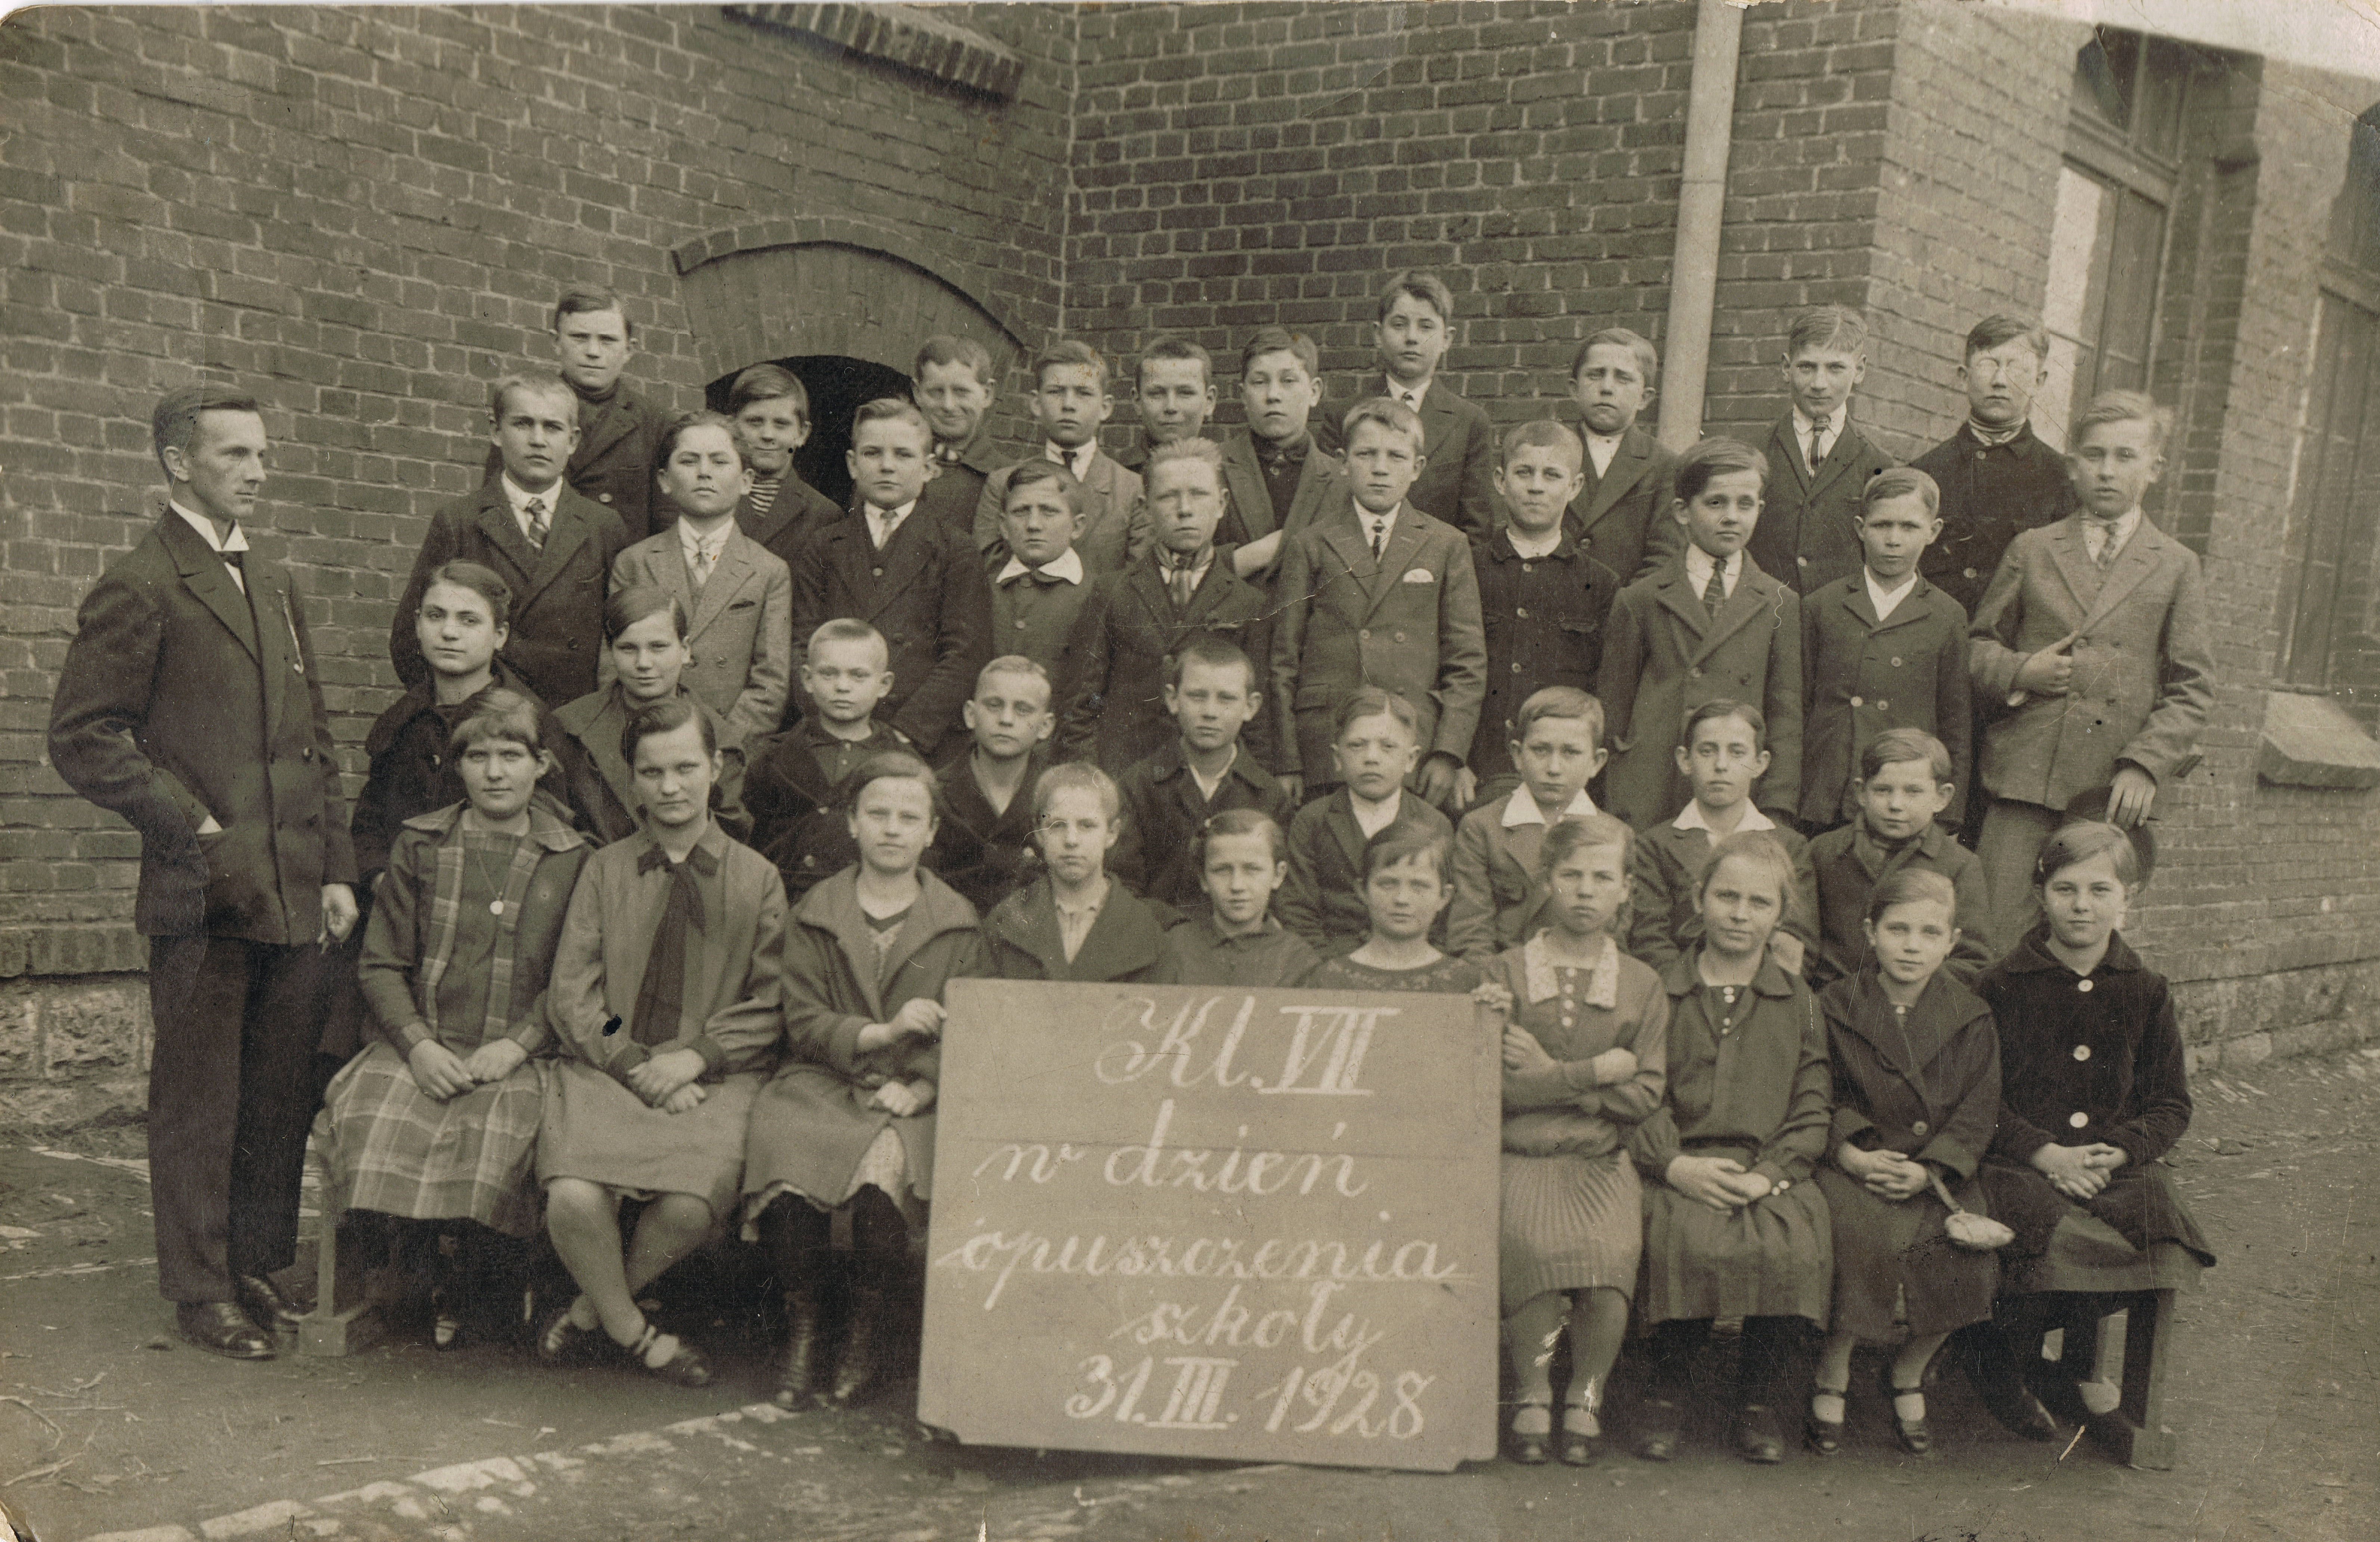 Kl. VII
w dzień
opuszczenia
szkoły
31. III. 1928